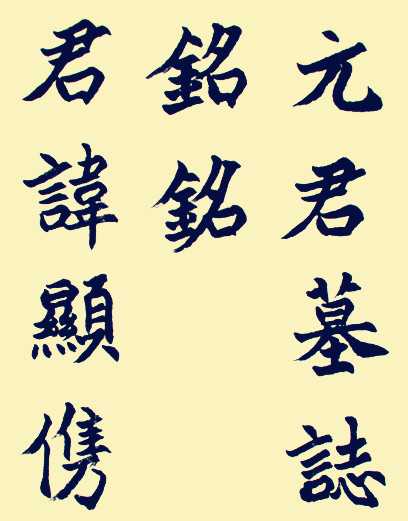 元君墓誌
銘銘
君諱顯儁